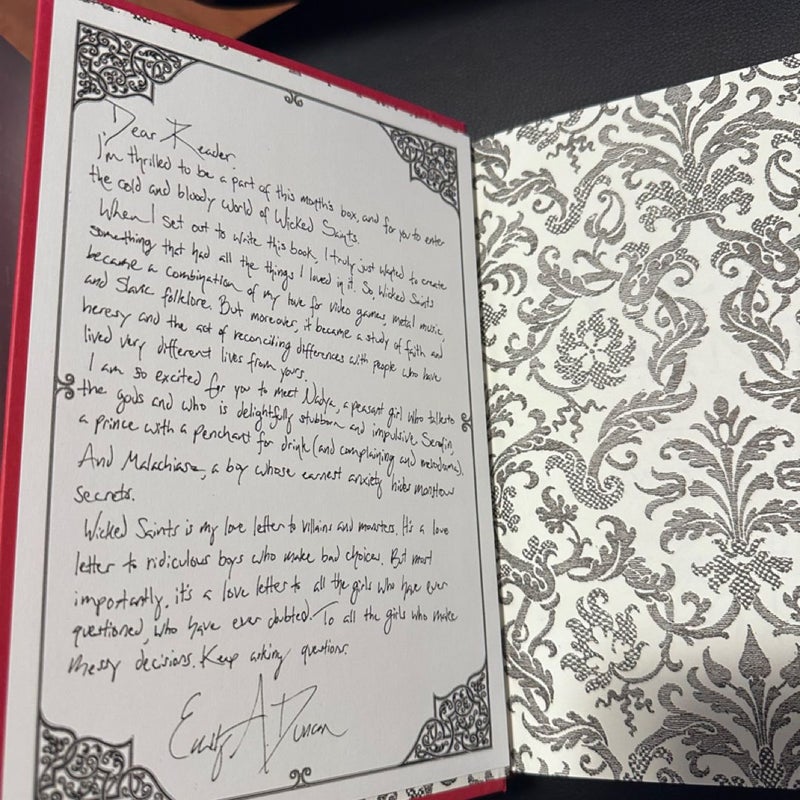 Dear Reader,
I'm thrilled to be a part of this month's box, and for you to enter
the cold and bloody world of Wicked Saints.
When I set out to write this book, I truly just wanted to create
something that had all the things I loved in it. So, Wicked Saints
became a combination of my love for video games, metal music,
and Slavic folklore. But moreover, it became a study of faith and
heresy and the act of reconciling differences with people who have
lived very different lives from yours.
I am so excited for you to meet Nadya, a peasant girl who talks to
the gods and who is delightfully stubborn and impulsive. Serefin,
a prince with a penchant for drink (and complaining and melodrama).
And Malachiasz, a boy whose earnest anxiety hides monstrous
secrets.
Wicked Saints is my love letter to villains and monsters. It's a love
letter to ridiculous boys who make bad choices. But most
importantly, it's a love letter to all the girls who have ever
questioned, who have ever doubted. To all the girls who make
messy decisions. Keep asking questions.
Emily A Duncan